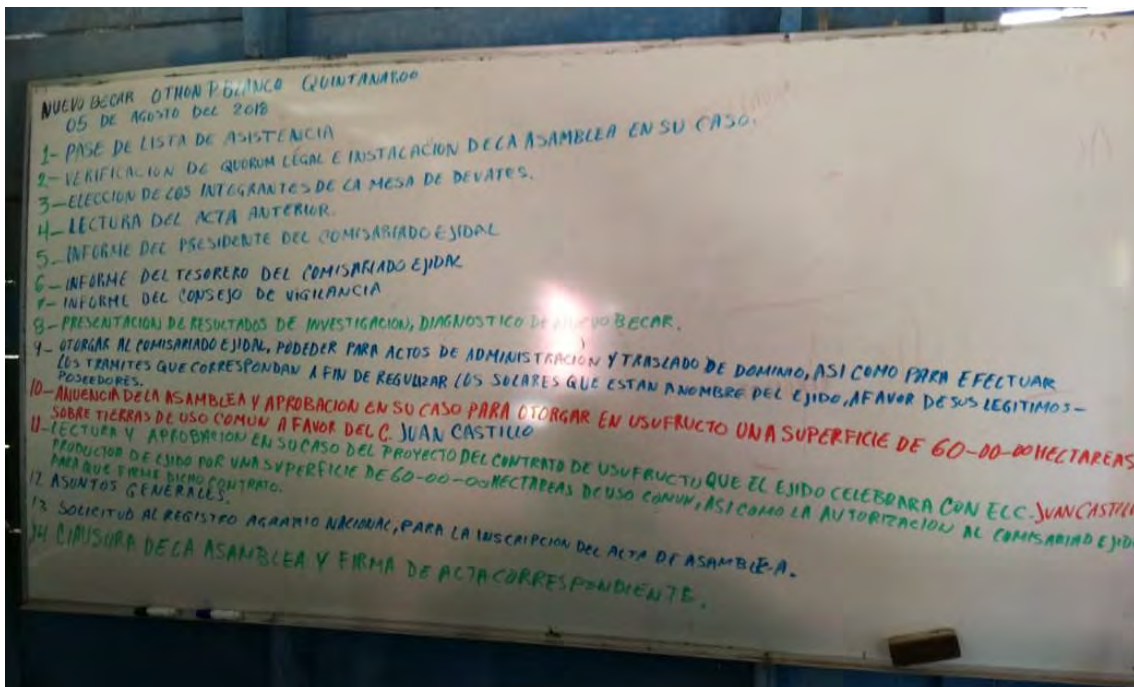 NUEVO BECAR OTHON P. BLANCO QUINTANAROO
05 DE AGOSTO DEL 2018
1- PASE DE LISTA DE ASISTENCIA
2- VERIFICACION DE QUORUM LEGAL E INSTALACION DE LA ASAMBLEA EN SU CASO.
3- ELECCION DE LOS INTEGRANTES DE LA MESA DE DEVATES.
4- LECTURA DEL ACTA ANTERIOR.
5- INFORME DEL PRESIDENTE DEL COMISARIADO EJIDAL
6- INFORME DEL TESORERO DEL COMISARIADO EJIDAL
7- INFORME DEL CONSEJO DE VIGILANCIA
8- PRESENTACION DE RESULTADOS DE INVESTIGACION, DIAGNOSTICO DE NUEVO BECAR.
9- OTORGAR AL COMISARIADO EJIDAL, PODEDER PARA ACTOS DE ADMINISTRACION Y TRASLADO DE DOMINIO, ASI COMO PARA EFECTUAR
LOS TRAMITES QUE CORRESPONDAN A FIN DE REGULIZAR LOS SOLARES QUE ESTAN A NOMBRE DEL EJIDO, A FAVOR DE SUS LEGITIMOS-
POSEEDORES.
10- ANUENCIA DE LA ASAMBLEA Y APROBACION EN SU CASO PARA OTORGAR EN USUFRUCTO UNA SUPERFICIE DE 60-00-00 HECTAREAS
SOBRE TIERRAS DE USO COMUN A FAVOR DEL C. JUAN CASTILLO
11- LECTURA Y APROBACION EN SU CASO DEL PROYECTO DEL CONTRATO DE USUFRUCTO QUE EL EJIDO CELEBRARA CON EL C. JUAN CASTILLO
PRODUCTOR DE EJIDO POR UNA SUPERFICIE DE 60-00-00 HECTAREAS DE USO COMUN, ASI COMO LA AUTORIZACION AL COMISARIAD EJIDA
PARA QUE FIRME DICHO CONTRATO.
12 ASUNTOS GENERALES.
13 SOLICITUD AL REGISTRO AGRARIO NACIONAL, PARA LA INSCRIPCION DEL ACTA DE ASAMBLEA.
14 CLAUSURA DE LA ASAMBLEA Y FIRMA DE ACTA CORRESPONDIENTE.